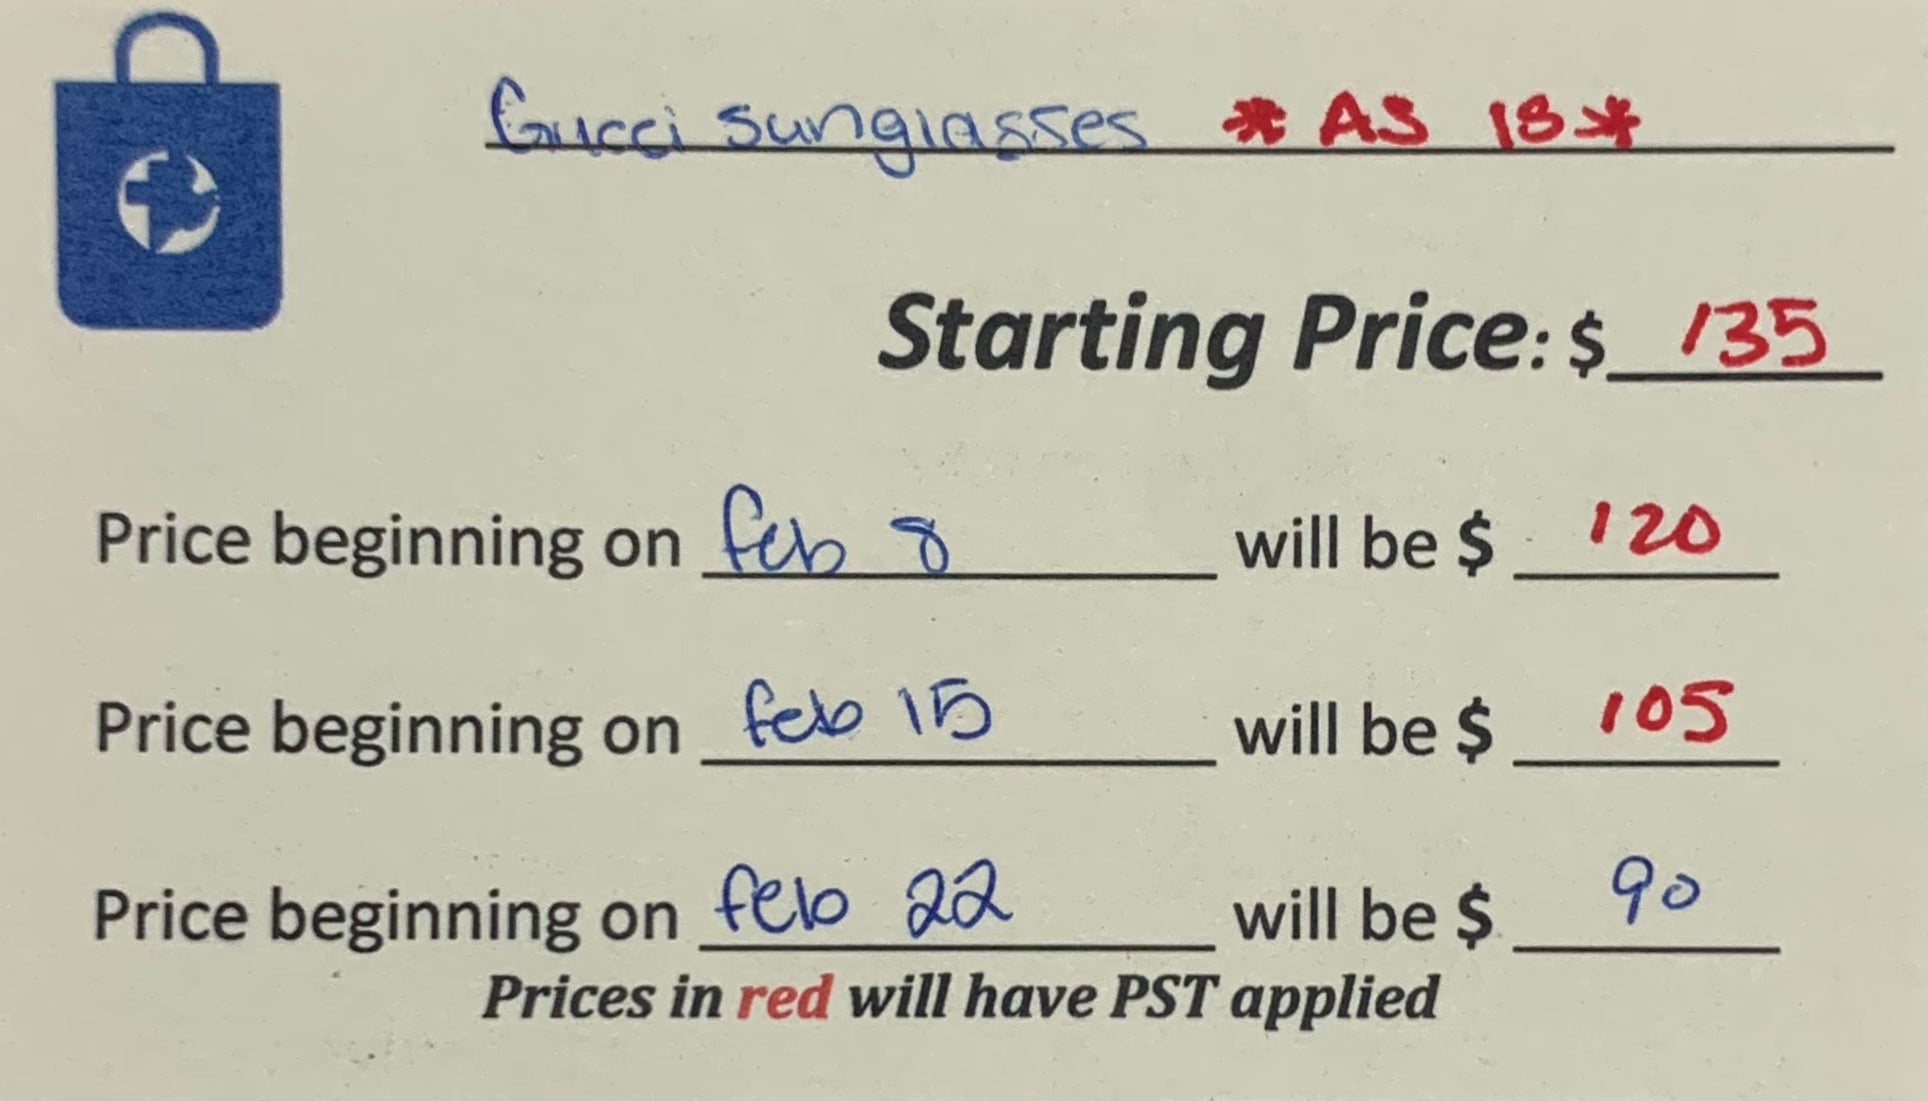 Gucci sunglasses * AS IS *
Starting Price: $ 135
Price beginning on feb 8 will be $ 120
Price beginning on feb 15 will be $ 105
Price beginning on feb 22 will be $ 90
Prices in red will have PST applied